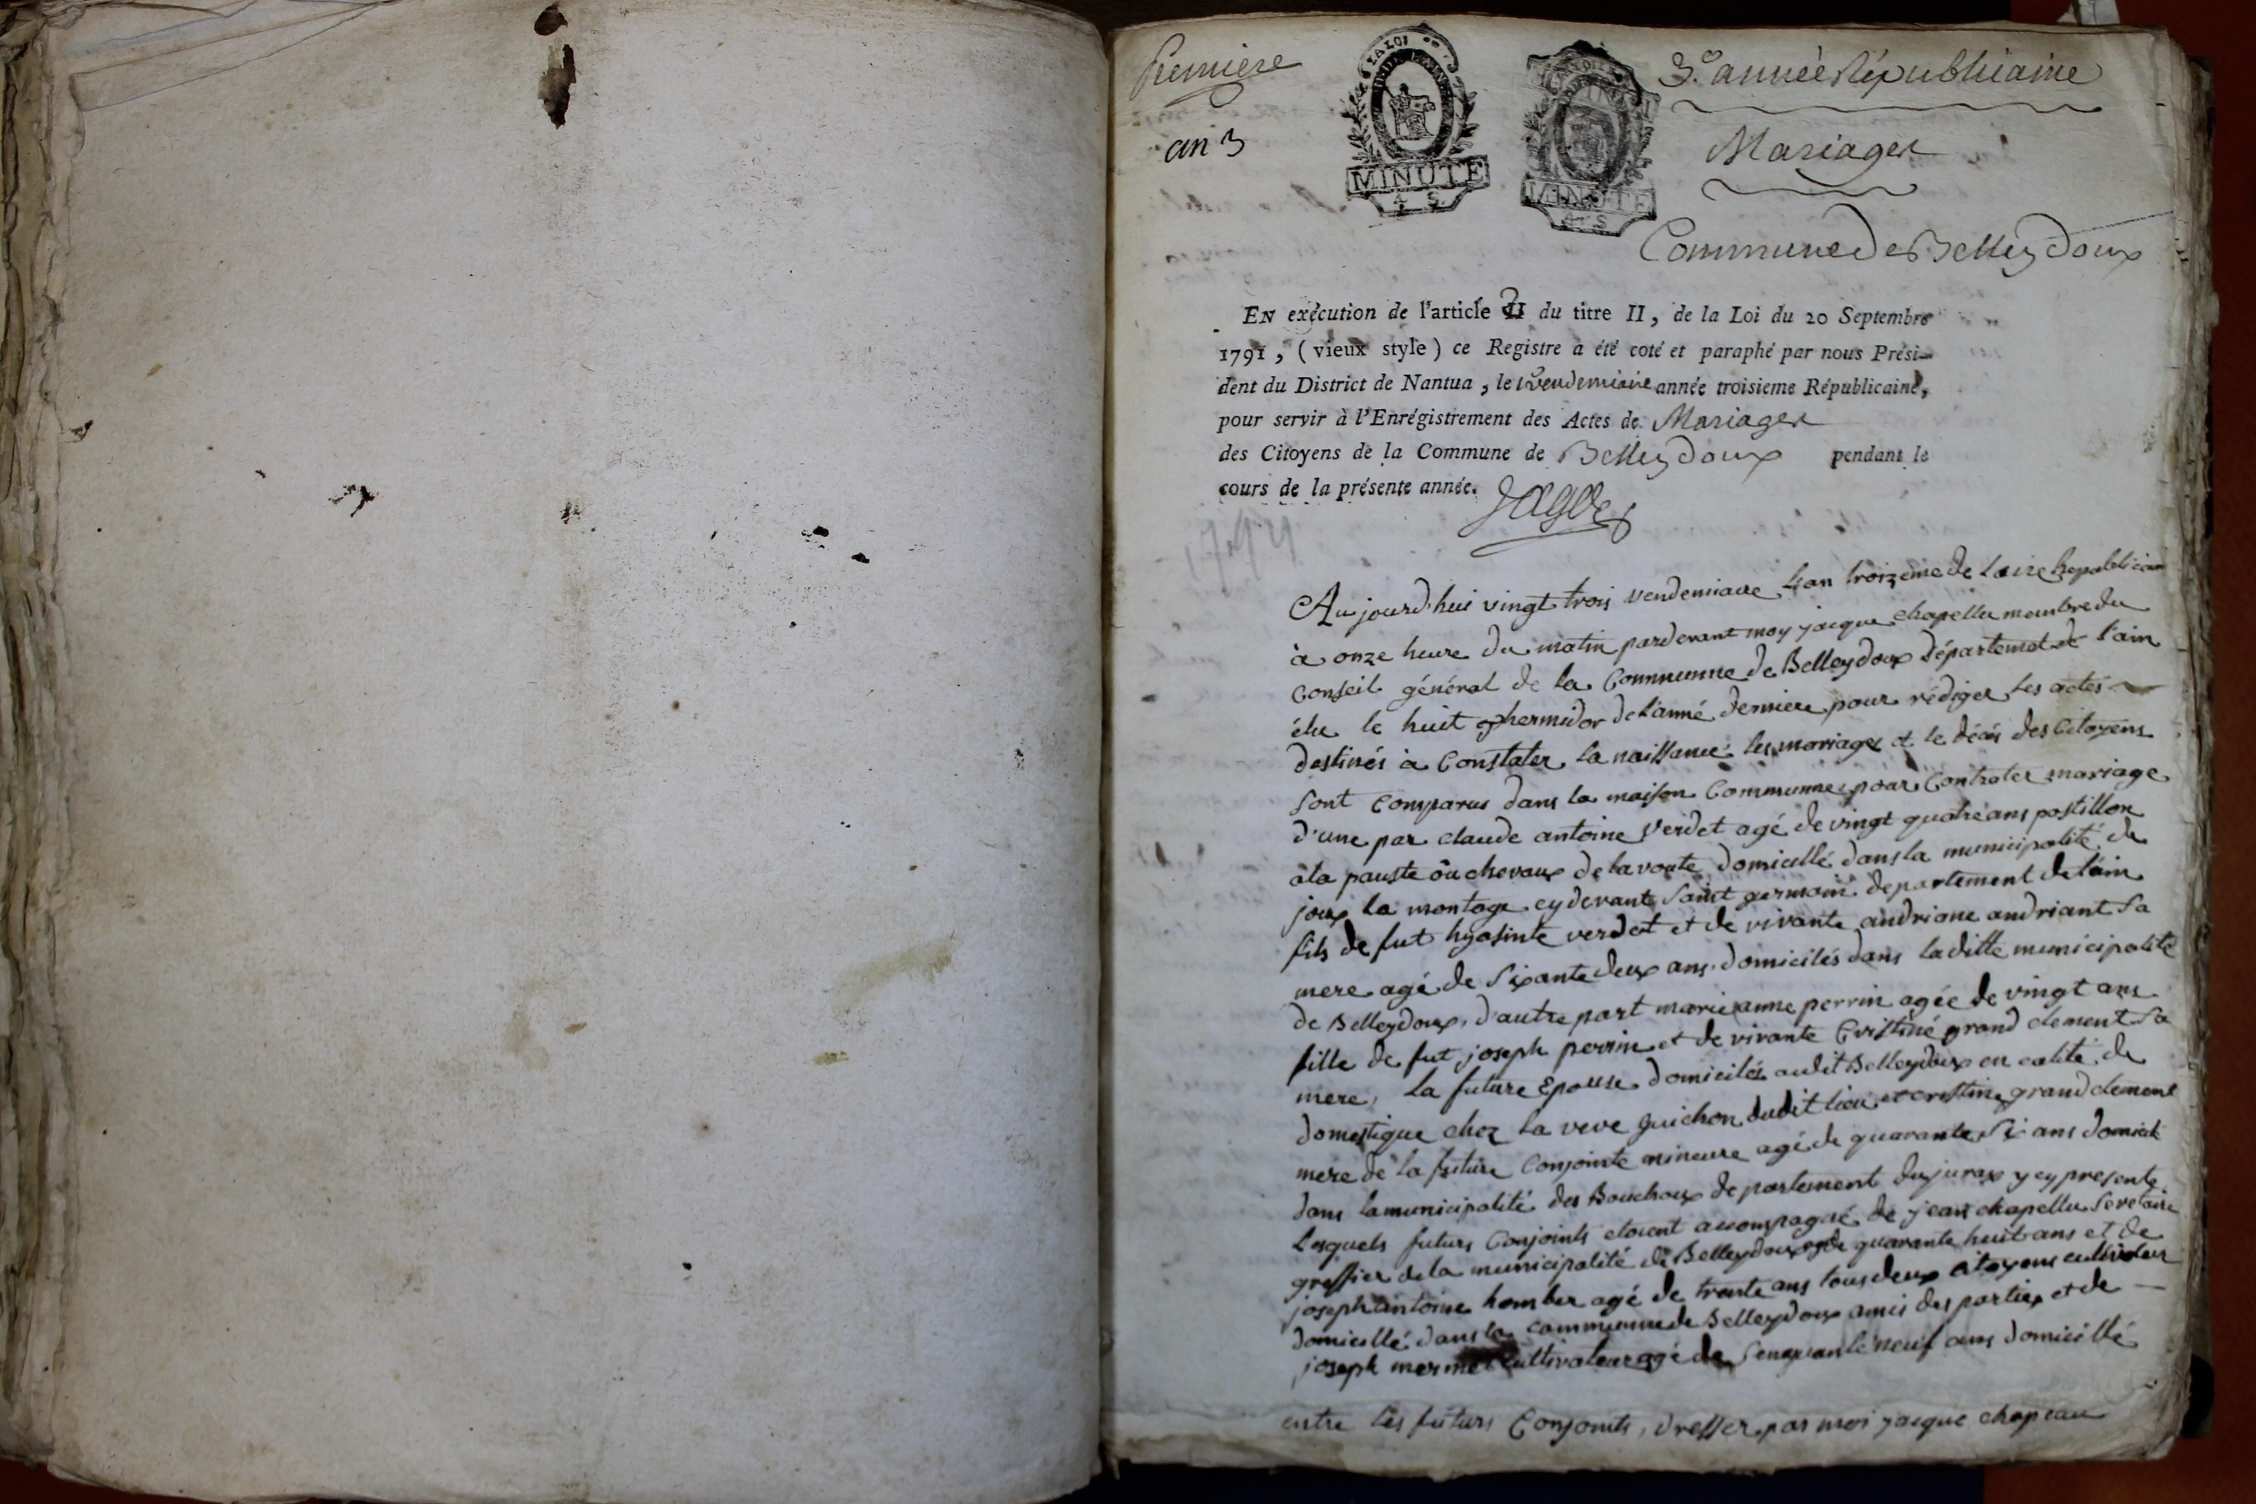 Premiere
an 3
LA LOI
MINUTE
4 S.
MINUTE
4 S
3.e année Républicaine
Mariages
Commune de Belleydoux
EN exécution de l'article 2 du titre II, de la Loi du 20 Septembre
1791, (vieux style) ce Registre a été coté et paraphé par nous Prési-
dent du District de Nantua, le 1er vendemiaire année troisieme Républicaine,
pour servir à l'Enrégistrement des Actes de Mariages
des Citoyens de la Commune de Belleydoux pendant le
cours de la présente année.
1794
Aujourd'hui vingt trois vendemiaire l'an troizeme de l'aire Republicain
à onze heure du matin pardevant moy jacque chapellu membre du
Conseil général de la Communne de Belleydoux département de l'ain
élu le huit thermidor de l'anné derniere pour rédiger les actes
destinés à Constater la naissance les mariages et le décés des Citoyens
sont comparus dans la maison Communne pour Contrater mariage
d'une par claude antoine verdet agé de vingt quatre ans postillon
ala pauste ôu chevaux de la voute domicillé dans la municipalité de
joux la montage cy devant saint germain departement de l'ain
fils de fut hyasinte verdet et de vivante andriane andriant sa
mere agé de sixante deux ans domicilés dans la ditte municipalité
de Belleydoux, d'autre part marie anne perrin agée de vingt ans
fille de fut joseph perrin et de vivante Cristine grand clement sa
mere, la future Epouse domicilés audit Belleydoux en calité de
domestique chez la veve guichon dudit lieu et cristine grand clement
mere de la future Conjointe mineure agé de quarante si ans domicilé
dans la municipalité des Bouchoux departement du jurax y cy presente
lesquels futurs Conjoints etoient accompagné de jean chapellu secretaire
greffier de la municipalité de Belleydoux agé de quarante huit ans et de
joseph antoine humber agé de trente ans tous deux citoyens cultivateur
domicillé dans la communne de Belleydoux amis des parties et de
joseph mermet cultivateur agé de senquante neuf ans domicillé
entre les futurs Conjoints, dresser par moi jacque chapeau